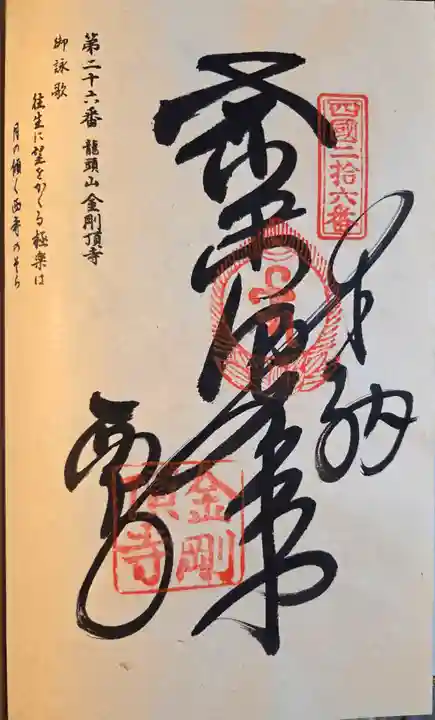 四國二拾六番
奉納
金剛
頂寺
第二十六番 龍頭山 金剛頂寺
御詠歌
往生に望をかくる極楽は
月の傾く西寺のそら